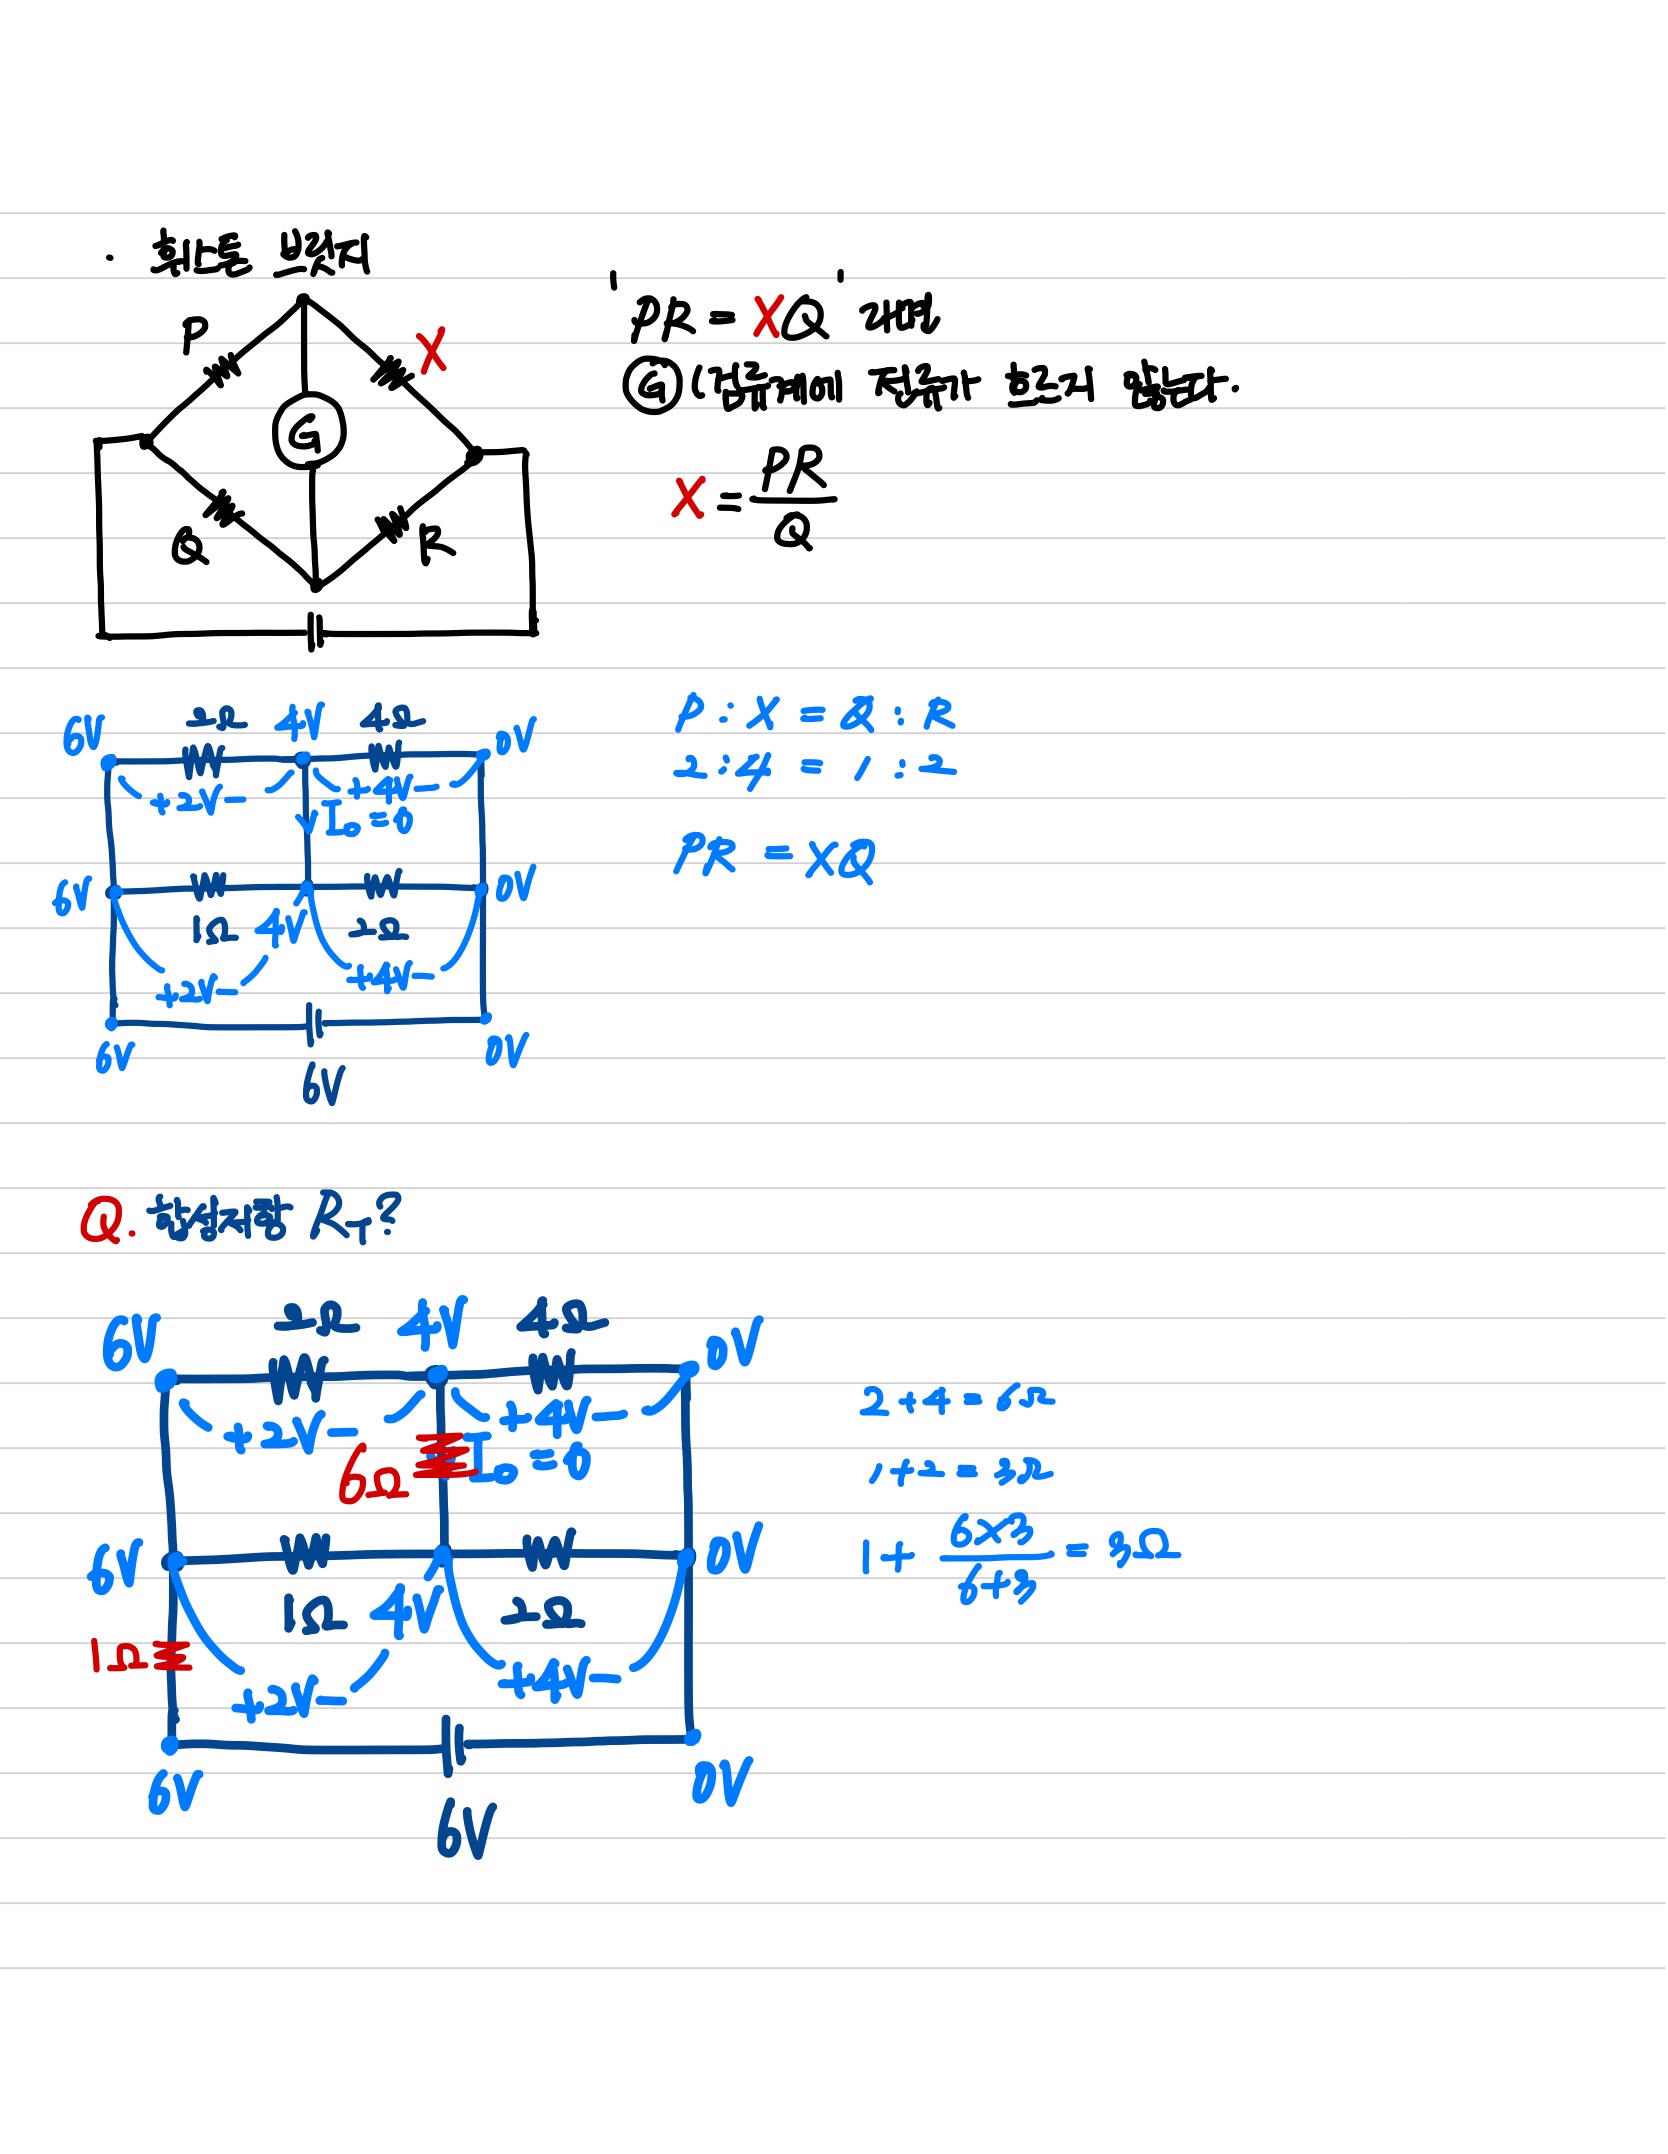 · 휘스톤 브릿지
P
X
G
Q
R
'PR = XQ' 라면
G (검류계에 전류가 흐르지 않는다.
X = PR/Q
6V 2Ω 4V 4Ω 0V
+2V- +4V-
I₀ = 0
6V 0V
1Ω 4V 2Ω
+2V- +4V-
6V 0V
6V
P : X = Q : R
2 : 4 = 1 : 2
PR = XQ
Q. 합성저항 R_T?
6V 2Ω 4V 4Ω 0V
+2V- +4V-
6Ω I₀ = 0
6V 0V
1Ω 4V 2Ω
1Ω
+2V- +4V-
6V 0V
6V
2 + 4 = 6Ω
1 + 2 = 3Ω
1 + 6×3/6+3 = 3Ω